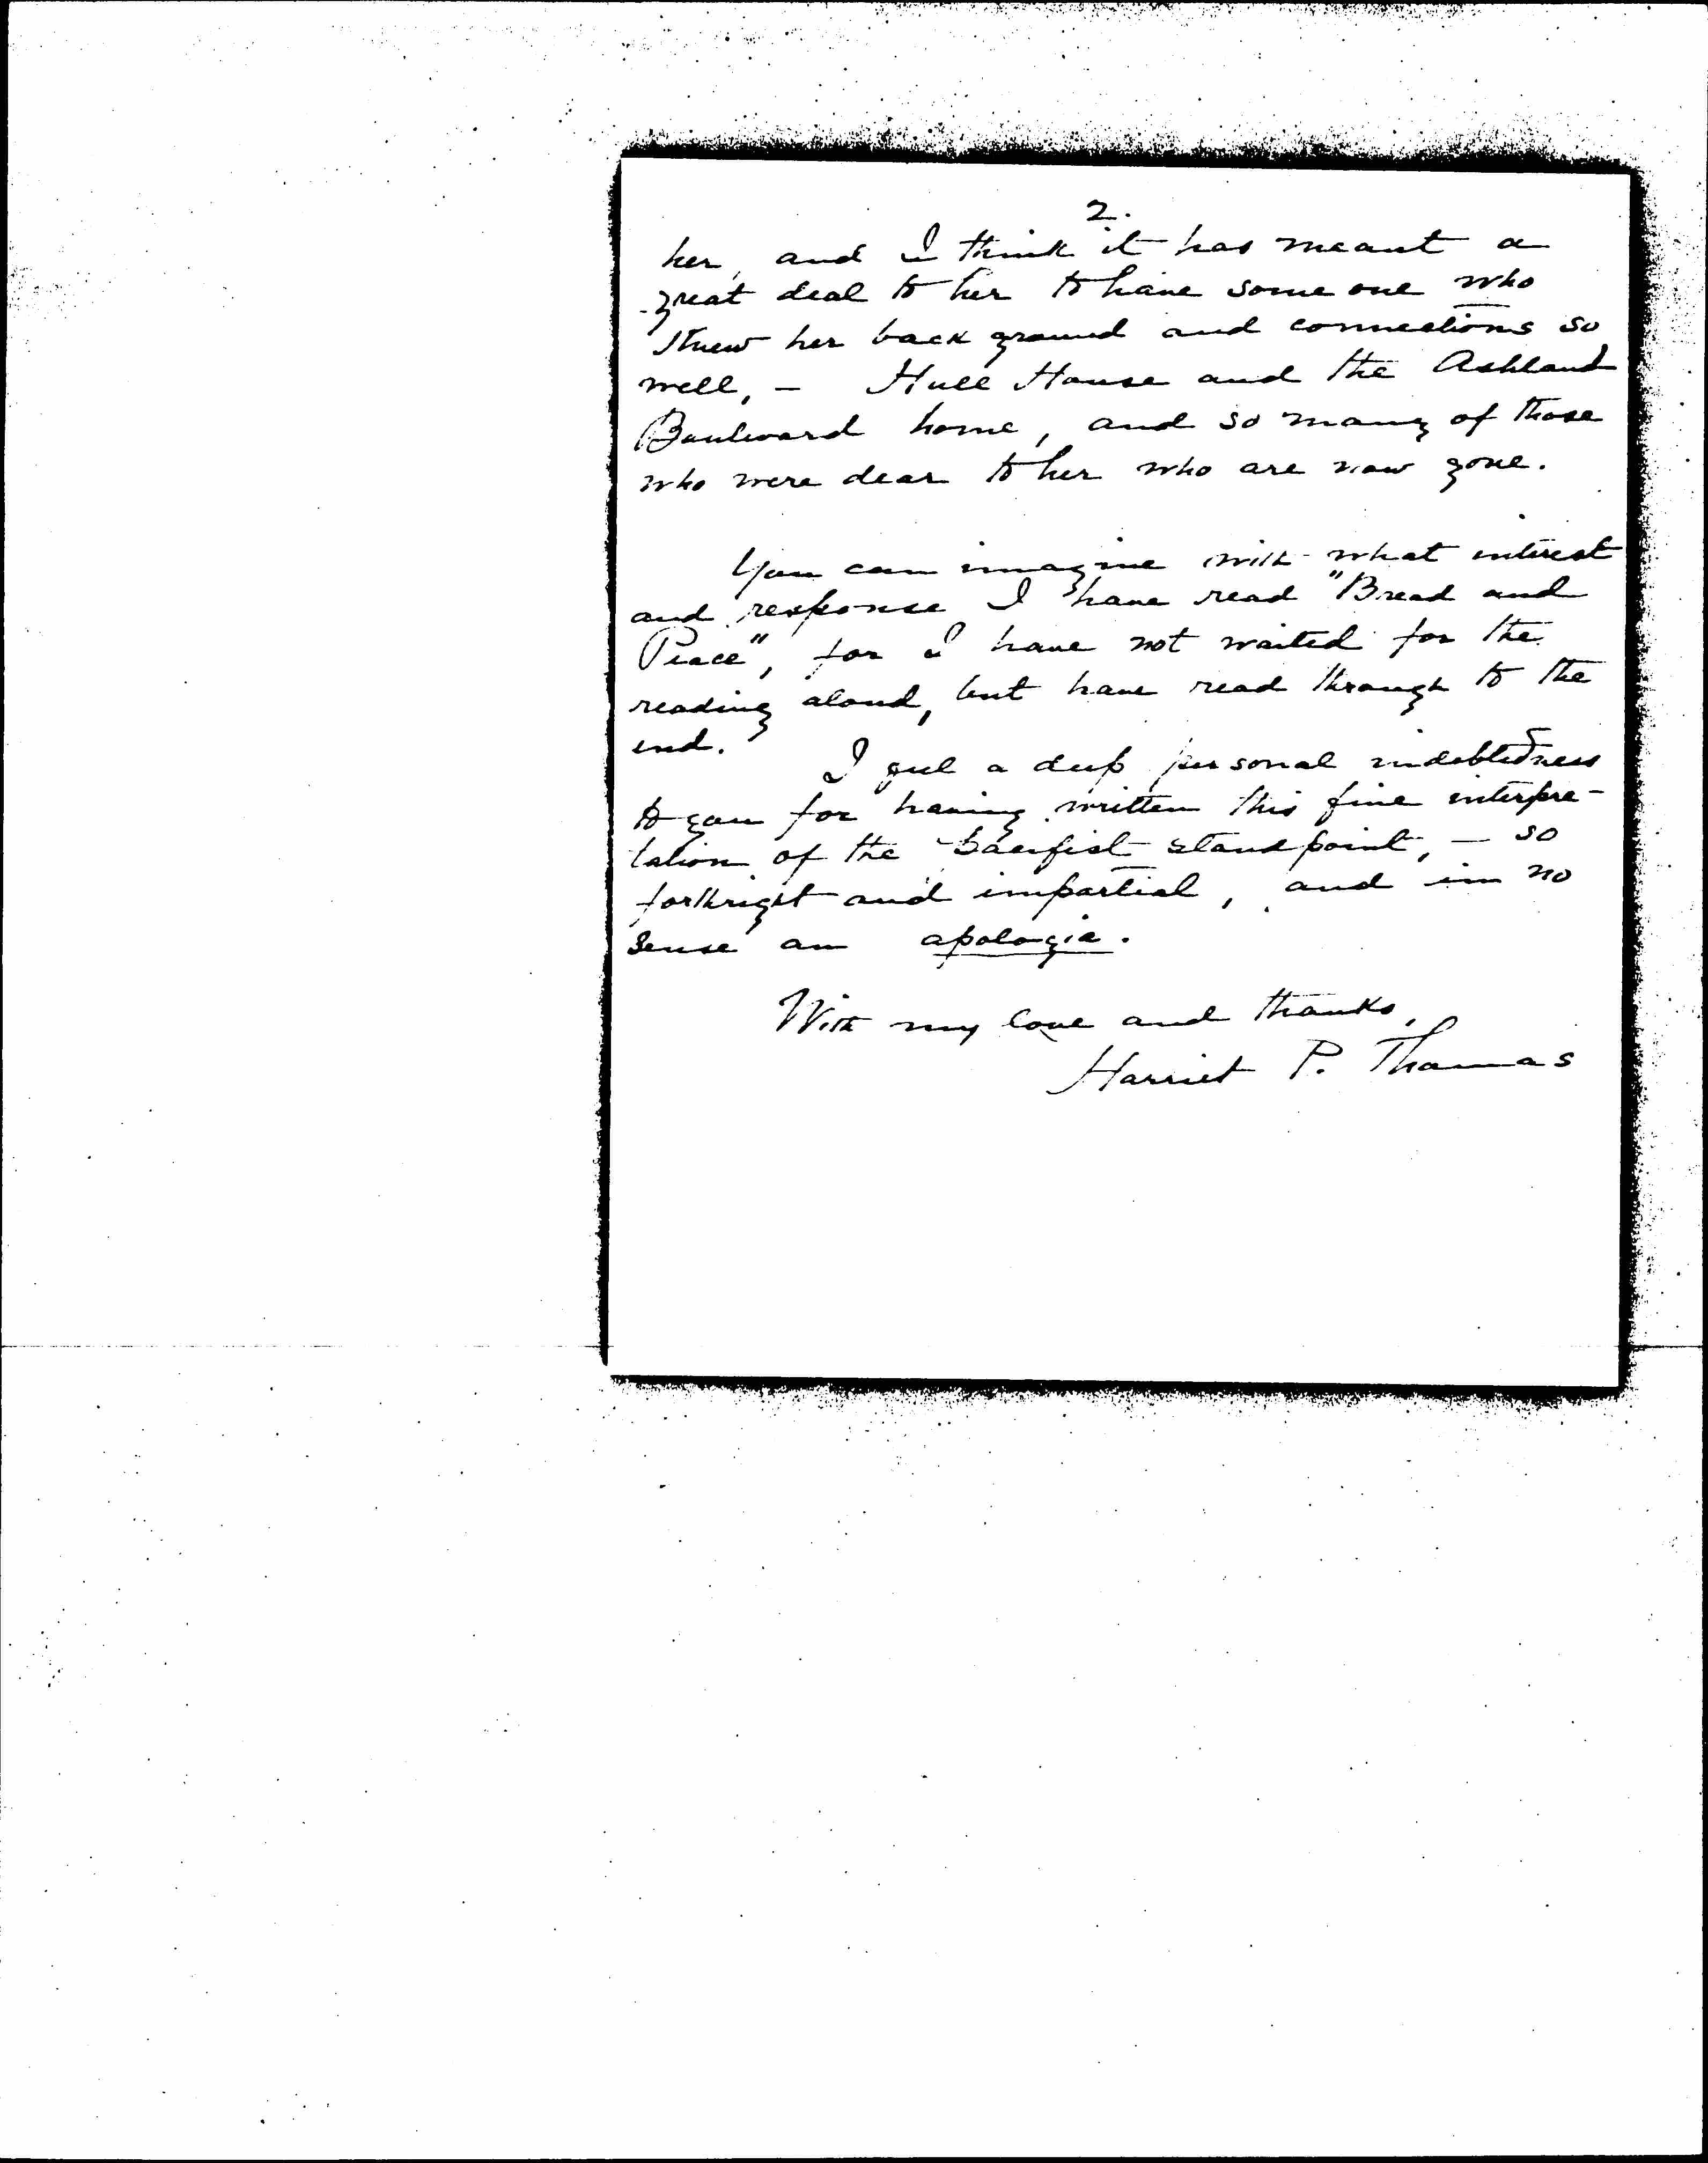 2.
her, and I think it has meant a
great deal to her to have some one who
knew her back ground and connections so
well, - Hull House and the Ashland
Boulevard home, and so many of those
who were dear to her who are now gone.
You can imagine with what interest
and response I have read "Bread and
Peace", for I have not waited for the
reading aloud, but have read through to the
end.
I feel a deep personal indebtedness
to you for having written this fine interpre-
tation of the pacifist standpoint, - so
forthright and impartial, and in no
sense an apologia.
With my love and thanks,
Harriet P. Thomas